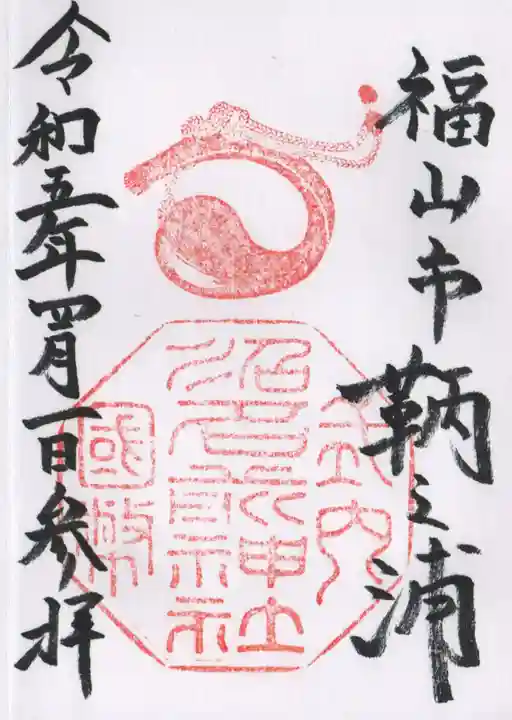 福山市鞆之浦
式内
沼名前神社
國幣
令和五年四月一日参拝